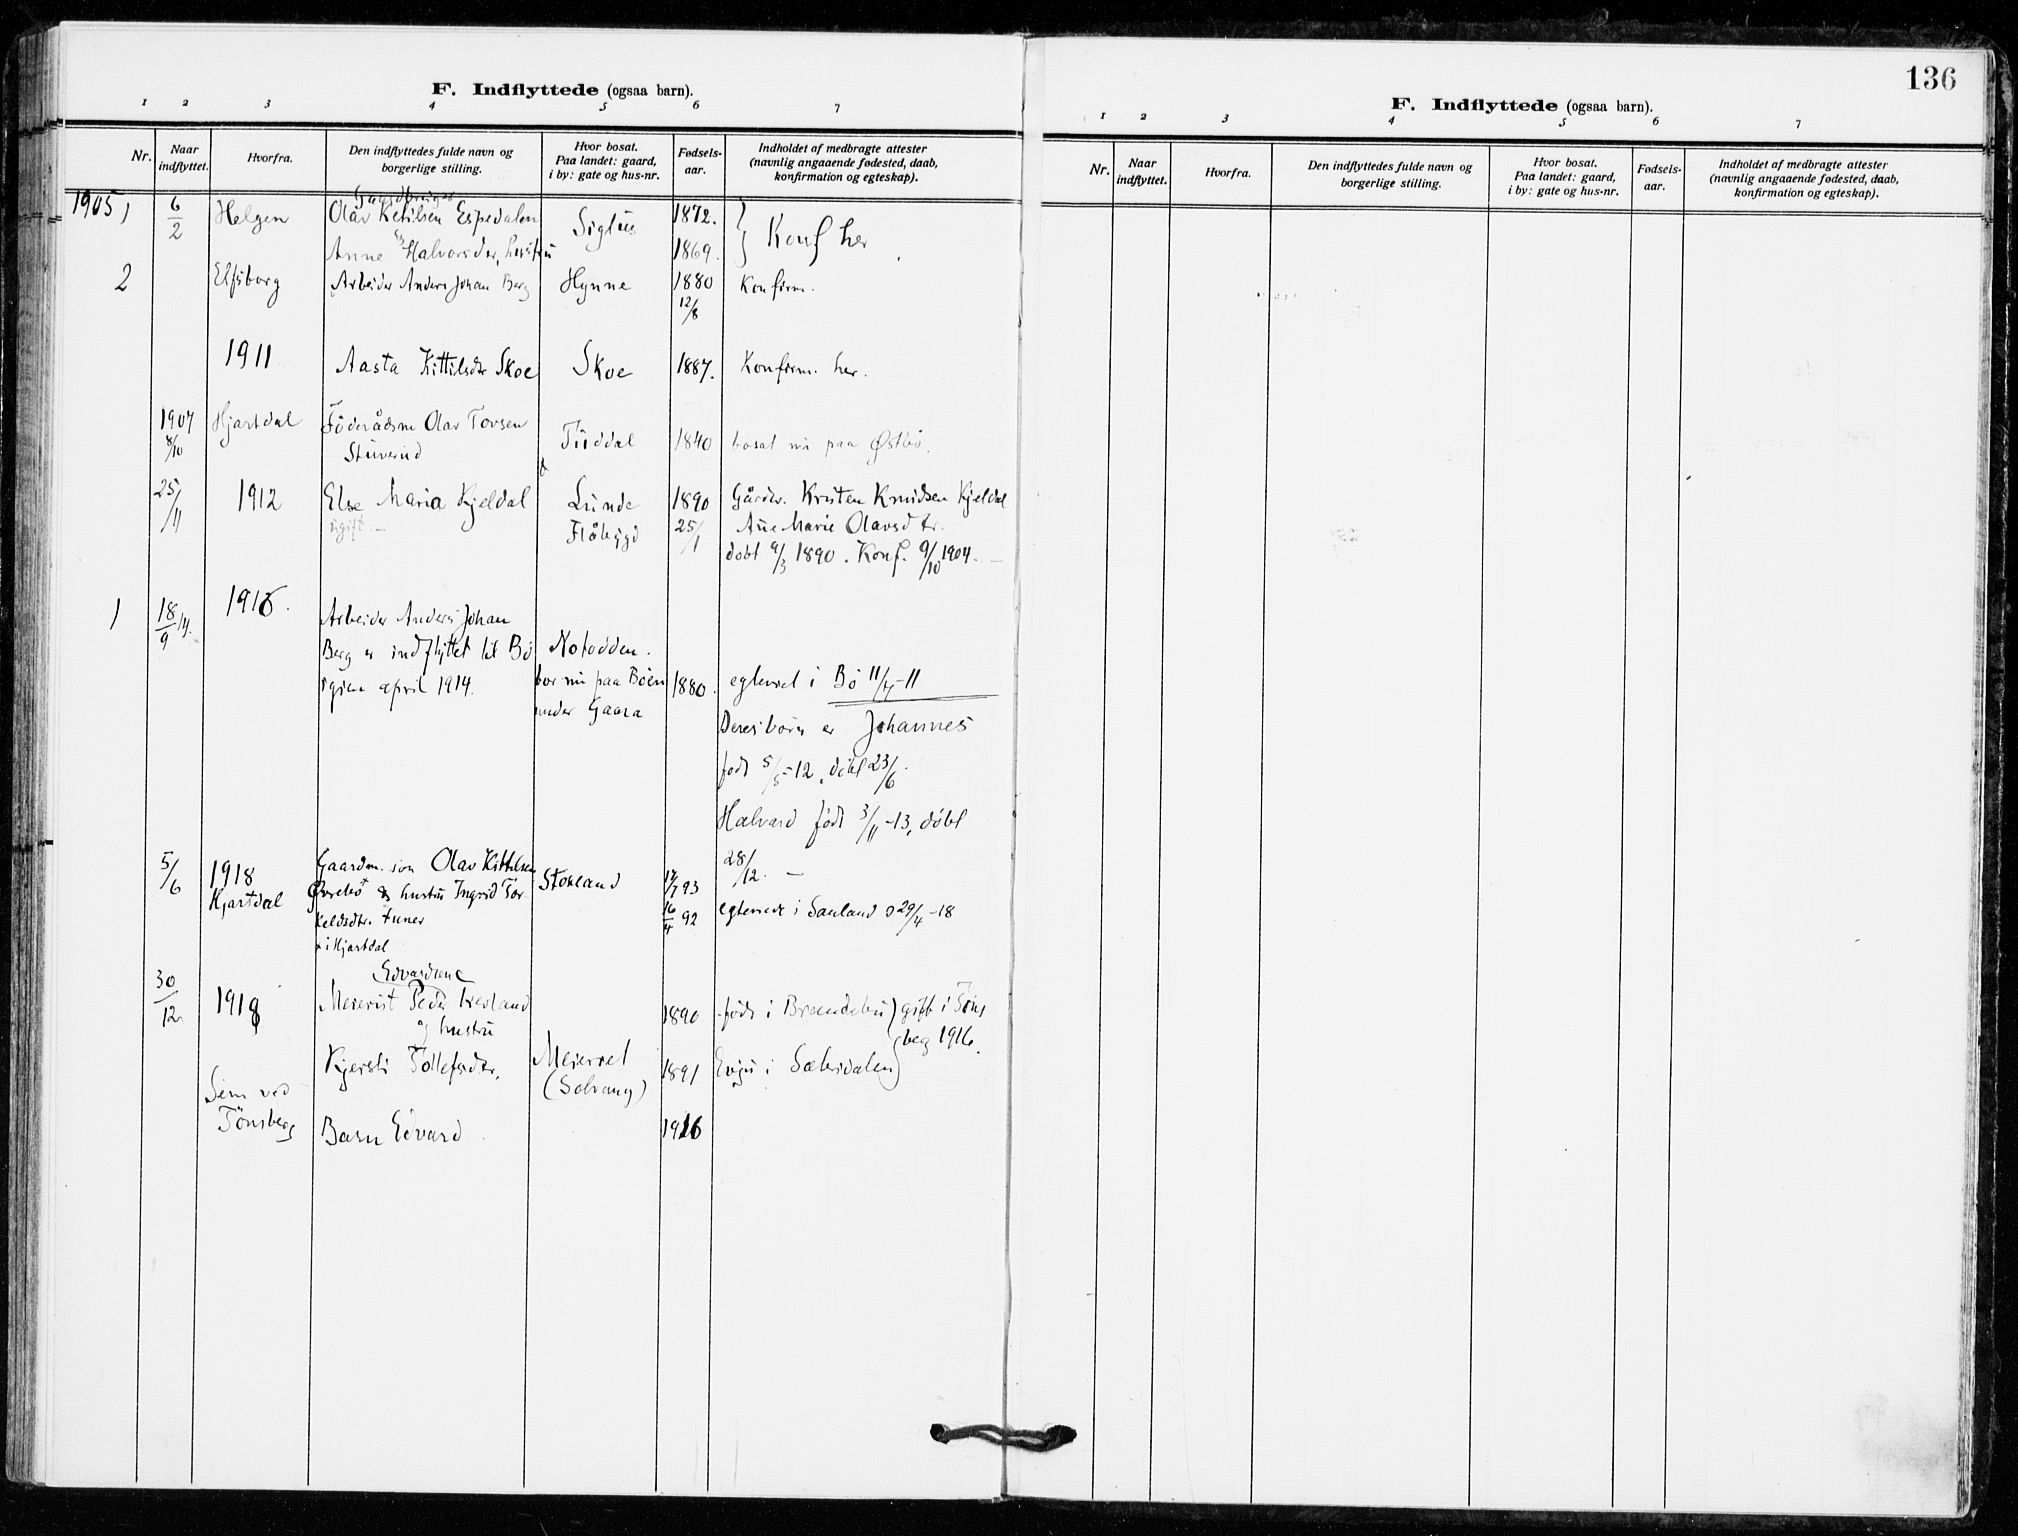 136
F. Indflyttede (ogsaa barn).
1 2 3 4 5 6 7
Nr. Naar indflyttet. Hvorfra. Den indflyttedes fulde navn og borgerlige stilling. Hvor bosat. Paa landet: gaard, i by: gate og hus-nr. Fødsels-aar. Indholdet af medbragte attester (navnlig angaaende fødested, daab, konfirmation og egteskap).
Gaardbruger
1905 1 6/2 Helgen Olav Ketilsen Espedalen 1872.
Sigtus } Konf her
Anne Halvorsdr, hustru 1869.
2 Elfsborg Arbeider Anders Johan Berg Hynne 1880 Konfirm.
12/8
1911 Aasta Kittilsdr Skoe Skoe 1887. Konfirm. her.
1907 Hjartdal Föderådsm Olav Tovsen
8/10 Stuverud Tuddal 1840 bosat nu paa Østbö.
25/11 1912 Else Maria Kjeldal Lunde 1890 Gårdbr. Kristen Knudsen Kjeldal
ugift. — Flåbygd 25/1 Ane Marie Olavsdtr.
döbt 9/3 1890. Konf. 9/10 1904. —
1 18/9 14. 1915. Arbeider Anders Johan
Berg er indflyttet til Bö Notodden.
igjen april 1914. bor nu paa Böen 1880. egteviet i Bö 11/4-11
under Gaara
Deres börn er Johannes
födt 5/5-12, döbt 23/6.
Halvard födt 3/11-13, döbt
28/12. —
5/6 1918 Gaardm. sön Olav Kittilsen
Hjartdal Øverbö og hustru Ingrid Tor- Stokland 12/7 93
keldsdtr. Funer 16/4 92 egteviede i Sauland 29/4-18
i Hjartdal
Edvardsene
30/12 1918 Meierist Peder 1890 födt i Brandebu } gift i Töns
og hustru berg 1916.
Kjersti Tollefsdtr, Meieriet 1891 Evju i Sætersdalen
Sem ved (Solvang)
Tönsberg Barn Edvard 1916
F. Indflyttede (ogsaa barn).
1 2 3 4 5 6 7
Nr. Naar indflyttet. Hvorfra. Den indflyttedes fulde navn og borgerlige stilling. Hvor bosat. Paa landet: gaard, i by: gate og hus-nr. Fødsels-aar. Indholdet af medbragte attester (navnlig angaaende fødested, daab, konfirmation og egteskap).